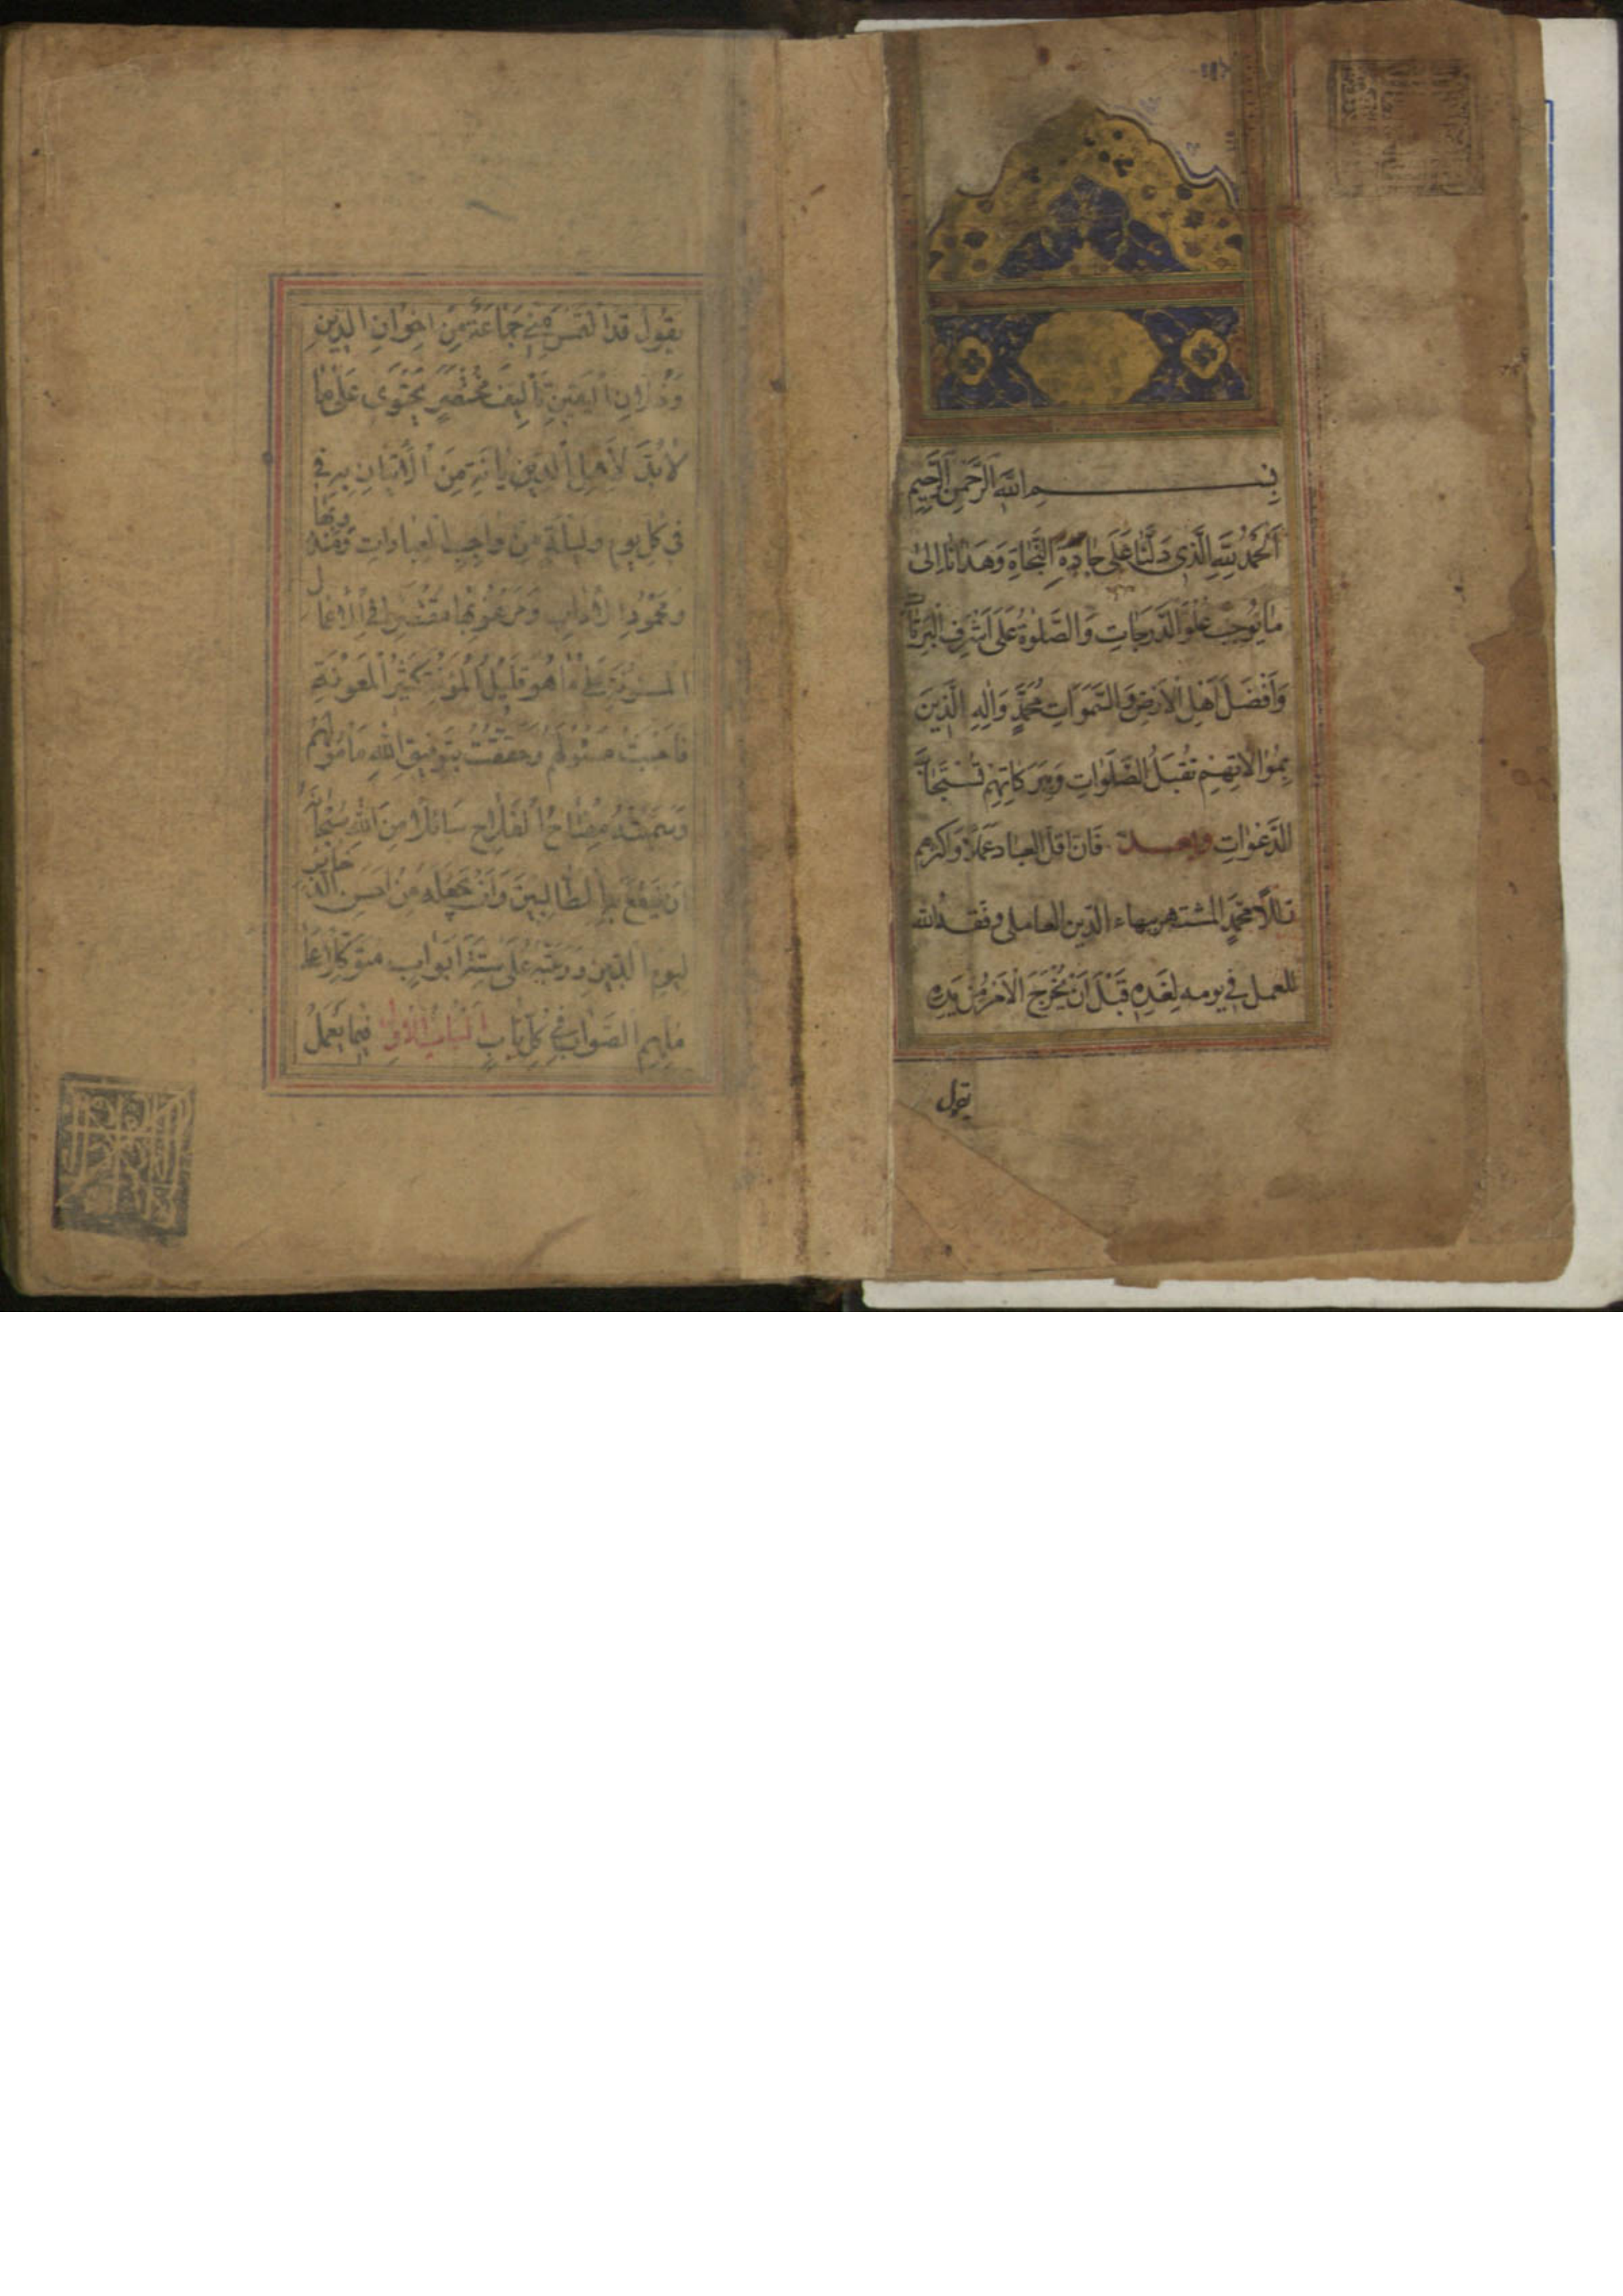 بِسْمِ اللهِ الرَّحْمٰنِ الرَّحِيمِ
اَلْحَمْدُ لِلّٰهِ الَّذِي دَلَّنَا عَلَى جَادَّةِ النَّجَاةِ وَهَدَانَا اِلىٰ
مَا يُوجِبُ عُلُوَّ الدَّرَجَاتِ وَالصَّلٰوةُ عَلَى اَشْرَفِ الْبَرِيَّاتِ
وَاَفْضَلِ اَهْلِ الْاَرْضِ وَالسَّمٰوَاتِ مُحَمَّدٍ وَاٰلِهِ الَّذِينَ
بِمُوَالَاتِهِمْ تُقْبَلُ الصَّلَوَاتِ وَبِبَرَكَاتِهِمْ تُسْتَجَابُ
الدَّعَوَاتِ وبعد فَاِنَّ اقل العباد عَمَلًا وَاَكْثَرهم
زللًا مُحَمَّدٍ المشتهر ببهاء الدّين العاملي وفّقه الله
للعمل في يومه لِغَدِهِ قَبْلَ اَنْ يَخْرُجَ الْاَمْرُ مِنْ يَدِهِ
يقول
يقول قد التمس مِنّي جَمَاعَةٌ مِنْ اِخْوَانِ الدِّينِ
وَخُلَّانِ الْيَقِينِ تَأْلِيفَ مُخْتَصَرٍ يَحْتَوِي عَلىٰ مَا
لَابُدَّ لِاَهْلِ الدِّيَانَةِ مِنَ الْاِتْيَانِ بِهِ فِي
في كُلِّ يوم وليلة من واجب العبادات ومندوبها
ومحمود الآداب وَمَرْغُوبِهَا مُقْتَصِرًا فِي الْاَعْمَالِ
المسنونة على مَا هُوَ قَلِيلُ الْمَؤُنَةِ كَثِيرُ الْمَعُونَةِ
فاجبت مسئولهم وحققت بتوفيق الله مَأْمُولَهُمْ
وَسَمَّيْتُهُ مِفْتَاحُ الْفَلَاحِ سَائِلًا مِنَ اللهِ سُبْحَانَهُ
اَنْ يَنْفَعَ بِهِ الطَّالِبِينَ وَاَنْ يَجْعَلَهُ مِنْ اَحْسَنِ الذَّخَائِرِ
ليوم الدين ورتبته عَلىٰ سِتَّةِ اَبْوَابٍ متوكّلًا عَلىٰ
مُلْهِمِ الصَّوَابِ فِي كُلِّ بَابٍ اَلْبَابُ الْاَوَّلُ فِيمَا يُعْمَلُ